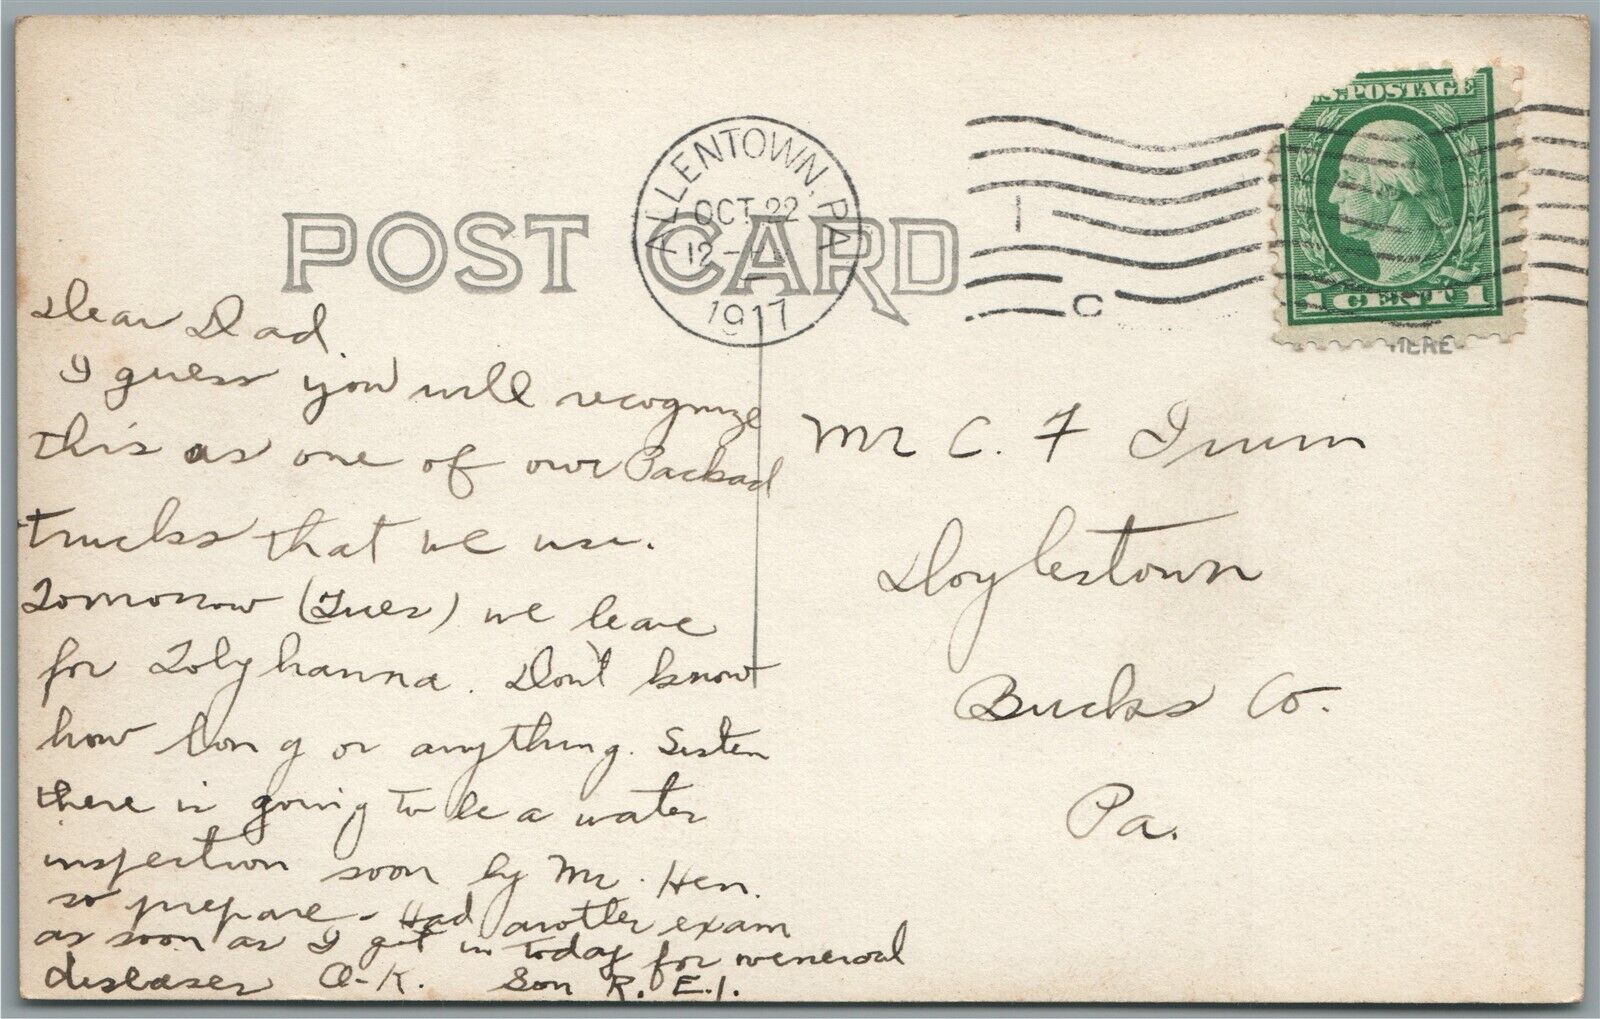 U.S. POSTAGE
1 CENT 1
HERE
ALLENTOWN, PA
OCT 22
12 -
1917
POST CARD
Dear Dad.
I guess you will recognize
this as one of our Packad
trucks that we use.
Tomorrow (Tues) we leave
for Tobyhanna. Don't know
how long or anything. Sister
there is going to be a water
inspection soon by Mr. Hen.
so prepare - Had another exam
as soon as I got in today for veneroal
diseases O-K. Son R. E. I.
Mr C. F
Doylestown
Bucks Co.
Pa.